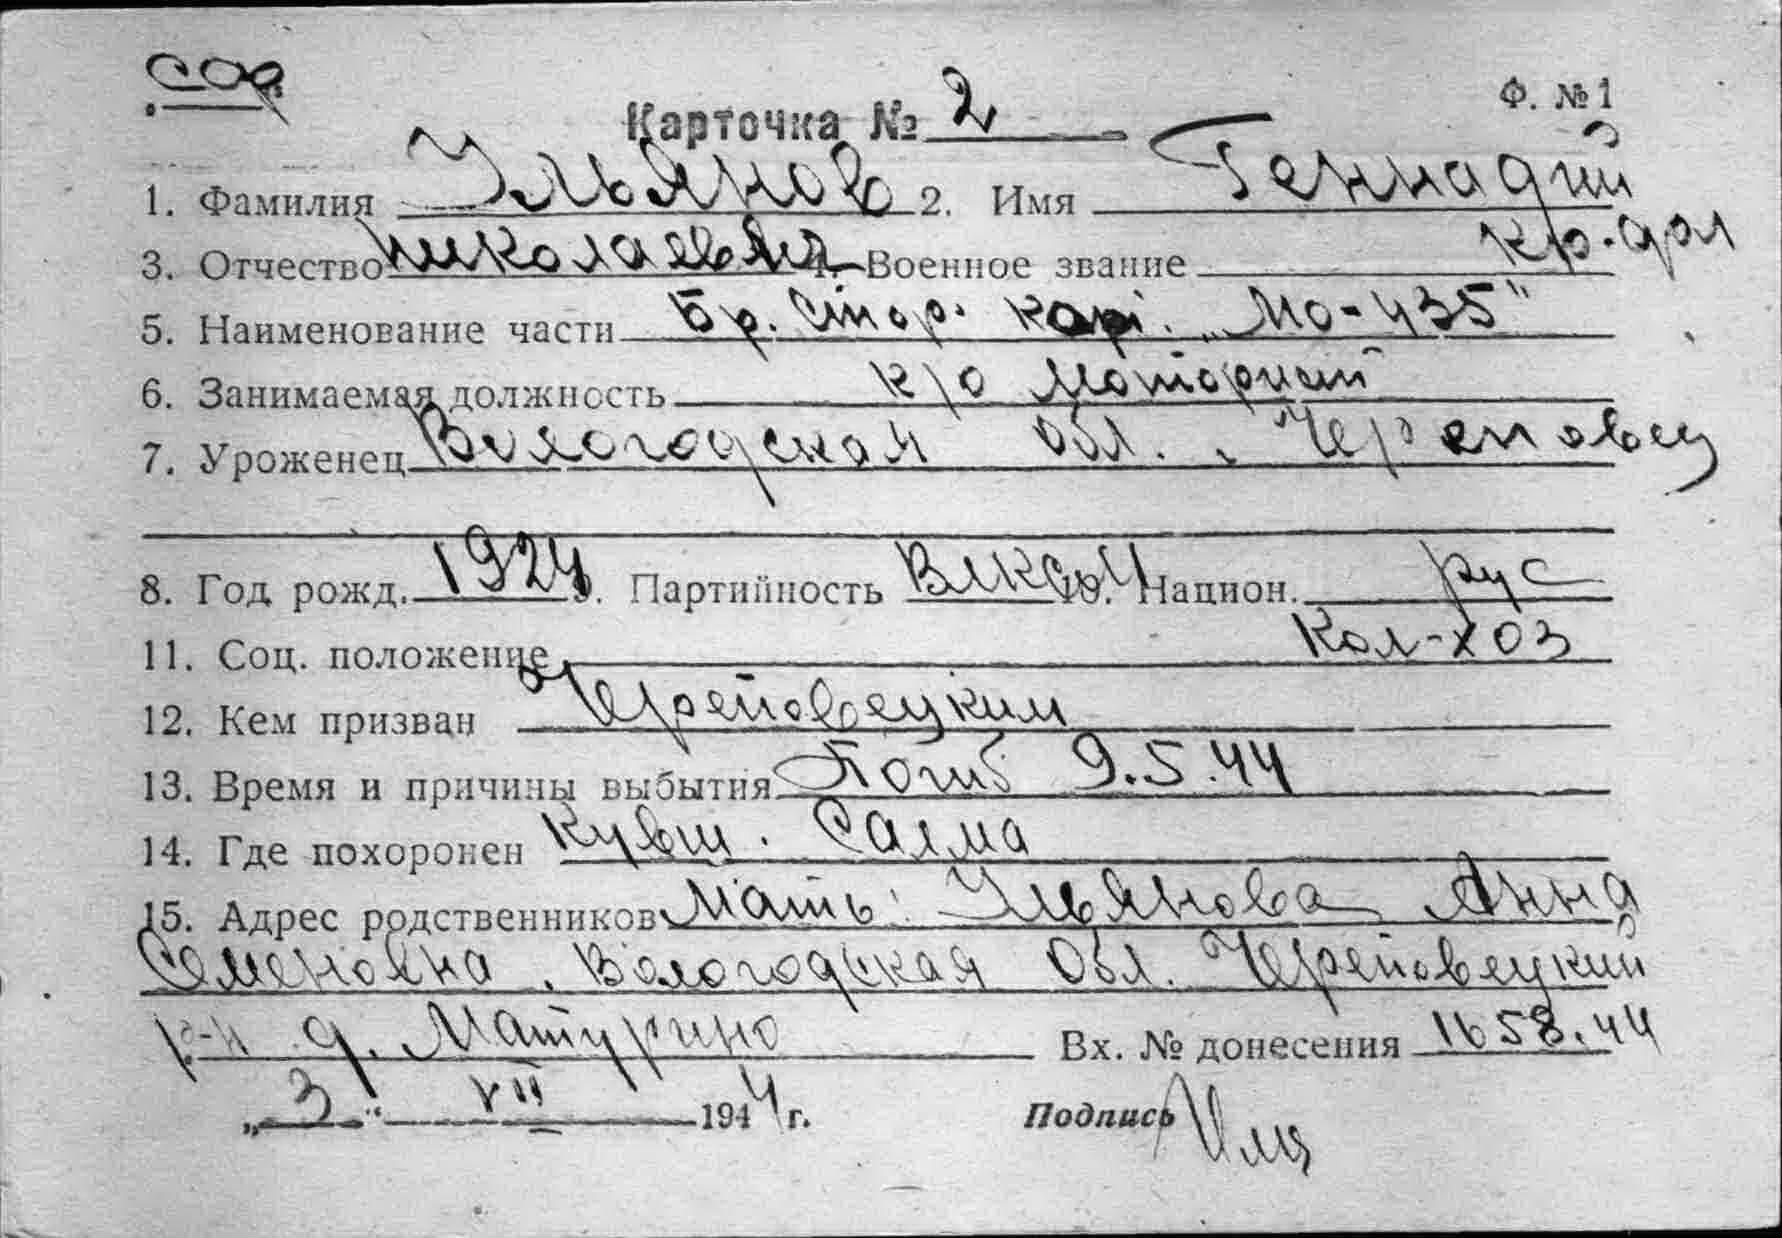 соф
Ф. № 1
Карточка № 2
1. Фамилия Ульянов 2. Имя Геннадий
3. Отчество Николаевич 4. Военное звание кр-фл
5. Наименование части Бр. Стор. кор. „МО-435"
6. Занимаемая должность к/о моторист
7. Уроженец Вологодская обл., Череповец
8. Год рожд. 1924 9. Партийность ВЛКСМ 10. Национ. рус
11. Соц. положение Кол-хоз
12. Кем призван Череповецким
13. Время и причины выбытия Погиб 9.5.44
14. Где похоронен Кувш. Салма
15. Адрес родственников Мать: Ульянова Анна
Семеновна, Вологодская обл. Череповецкий
р-н д. Матурино Вх. № донесения 1658.44
„3" VII 1944 г. Подпись